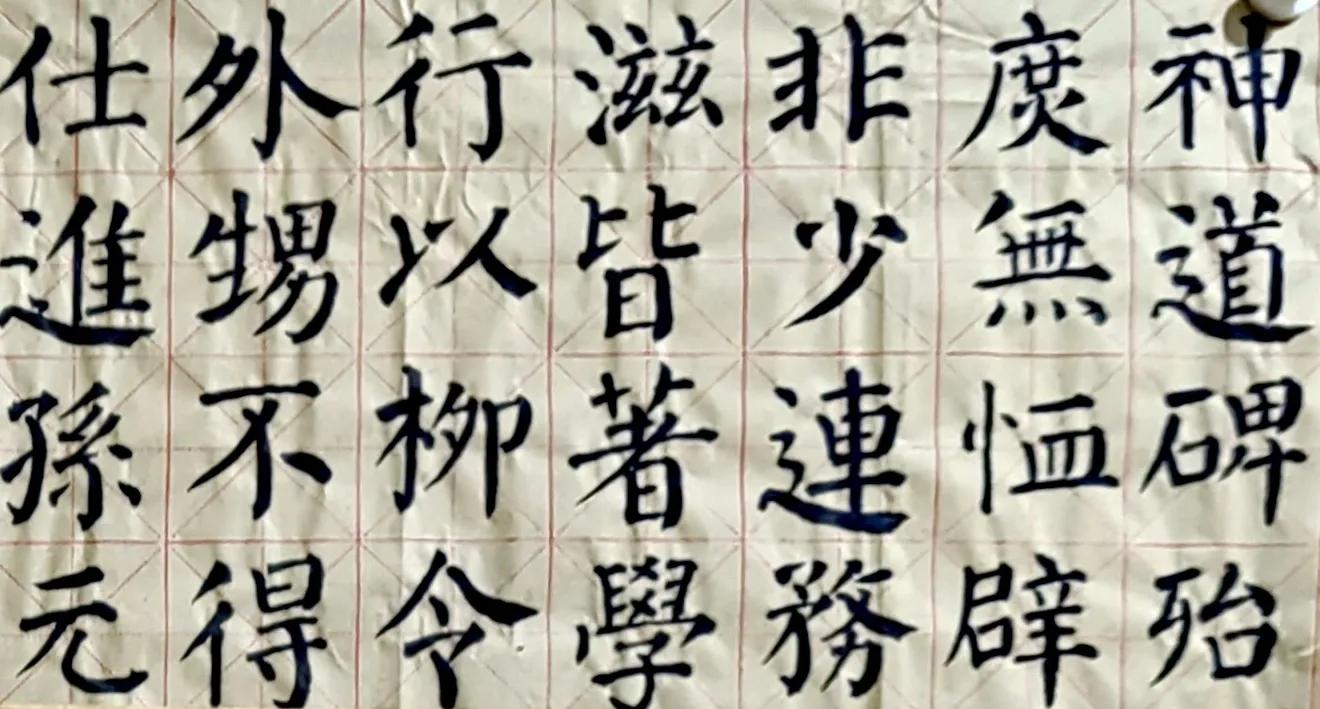 神道碑殆
庶無恤辟
非少連務
滋皆著學
行以柳令
外甥不得
仕進孫元